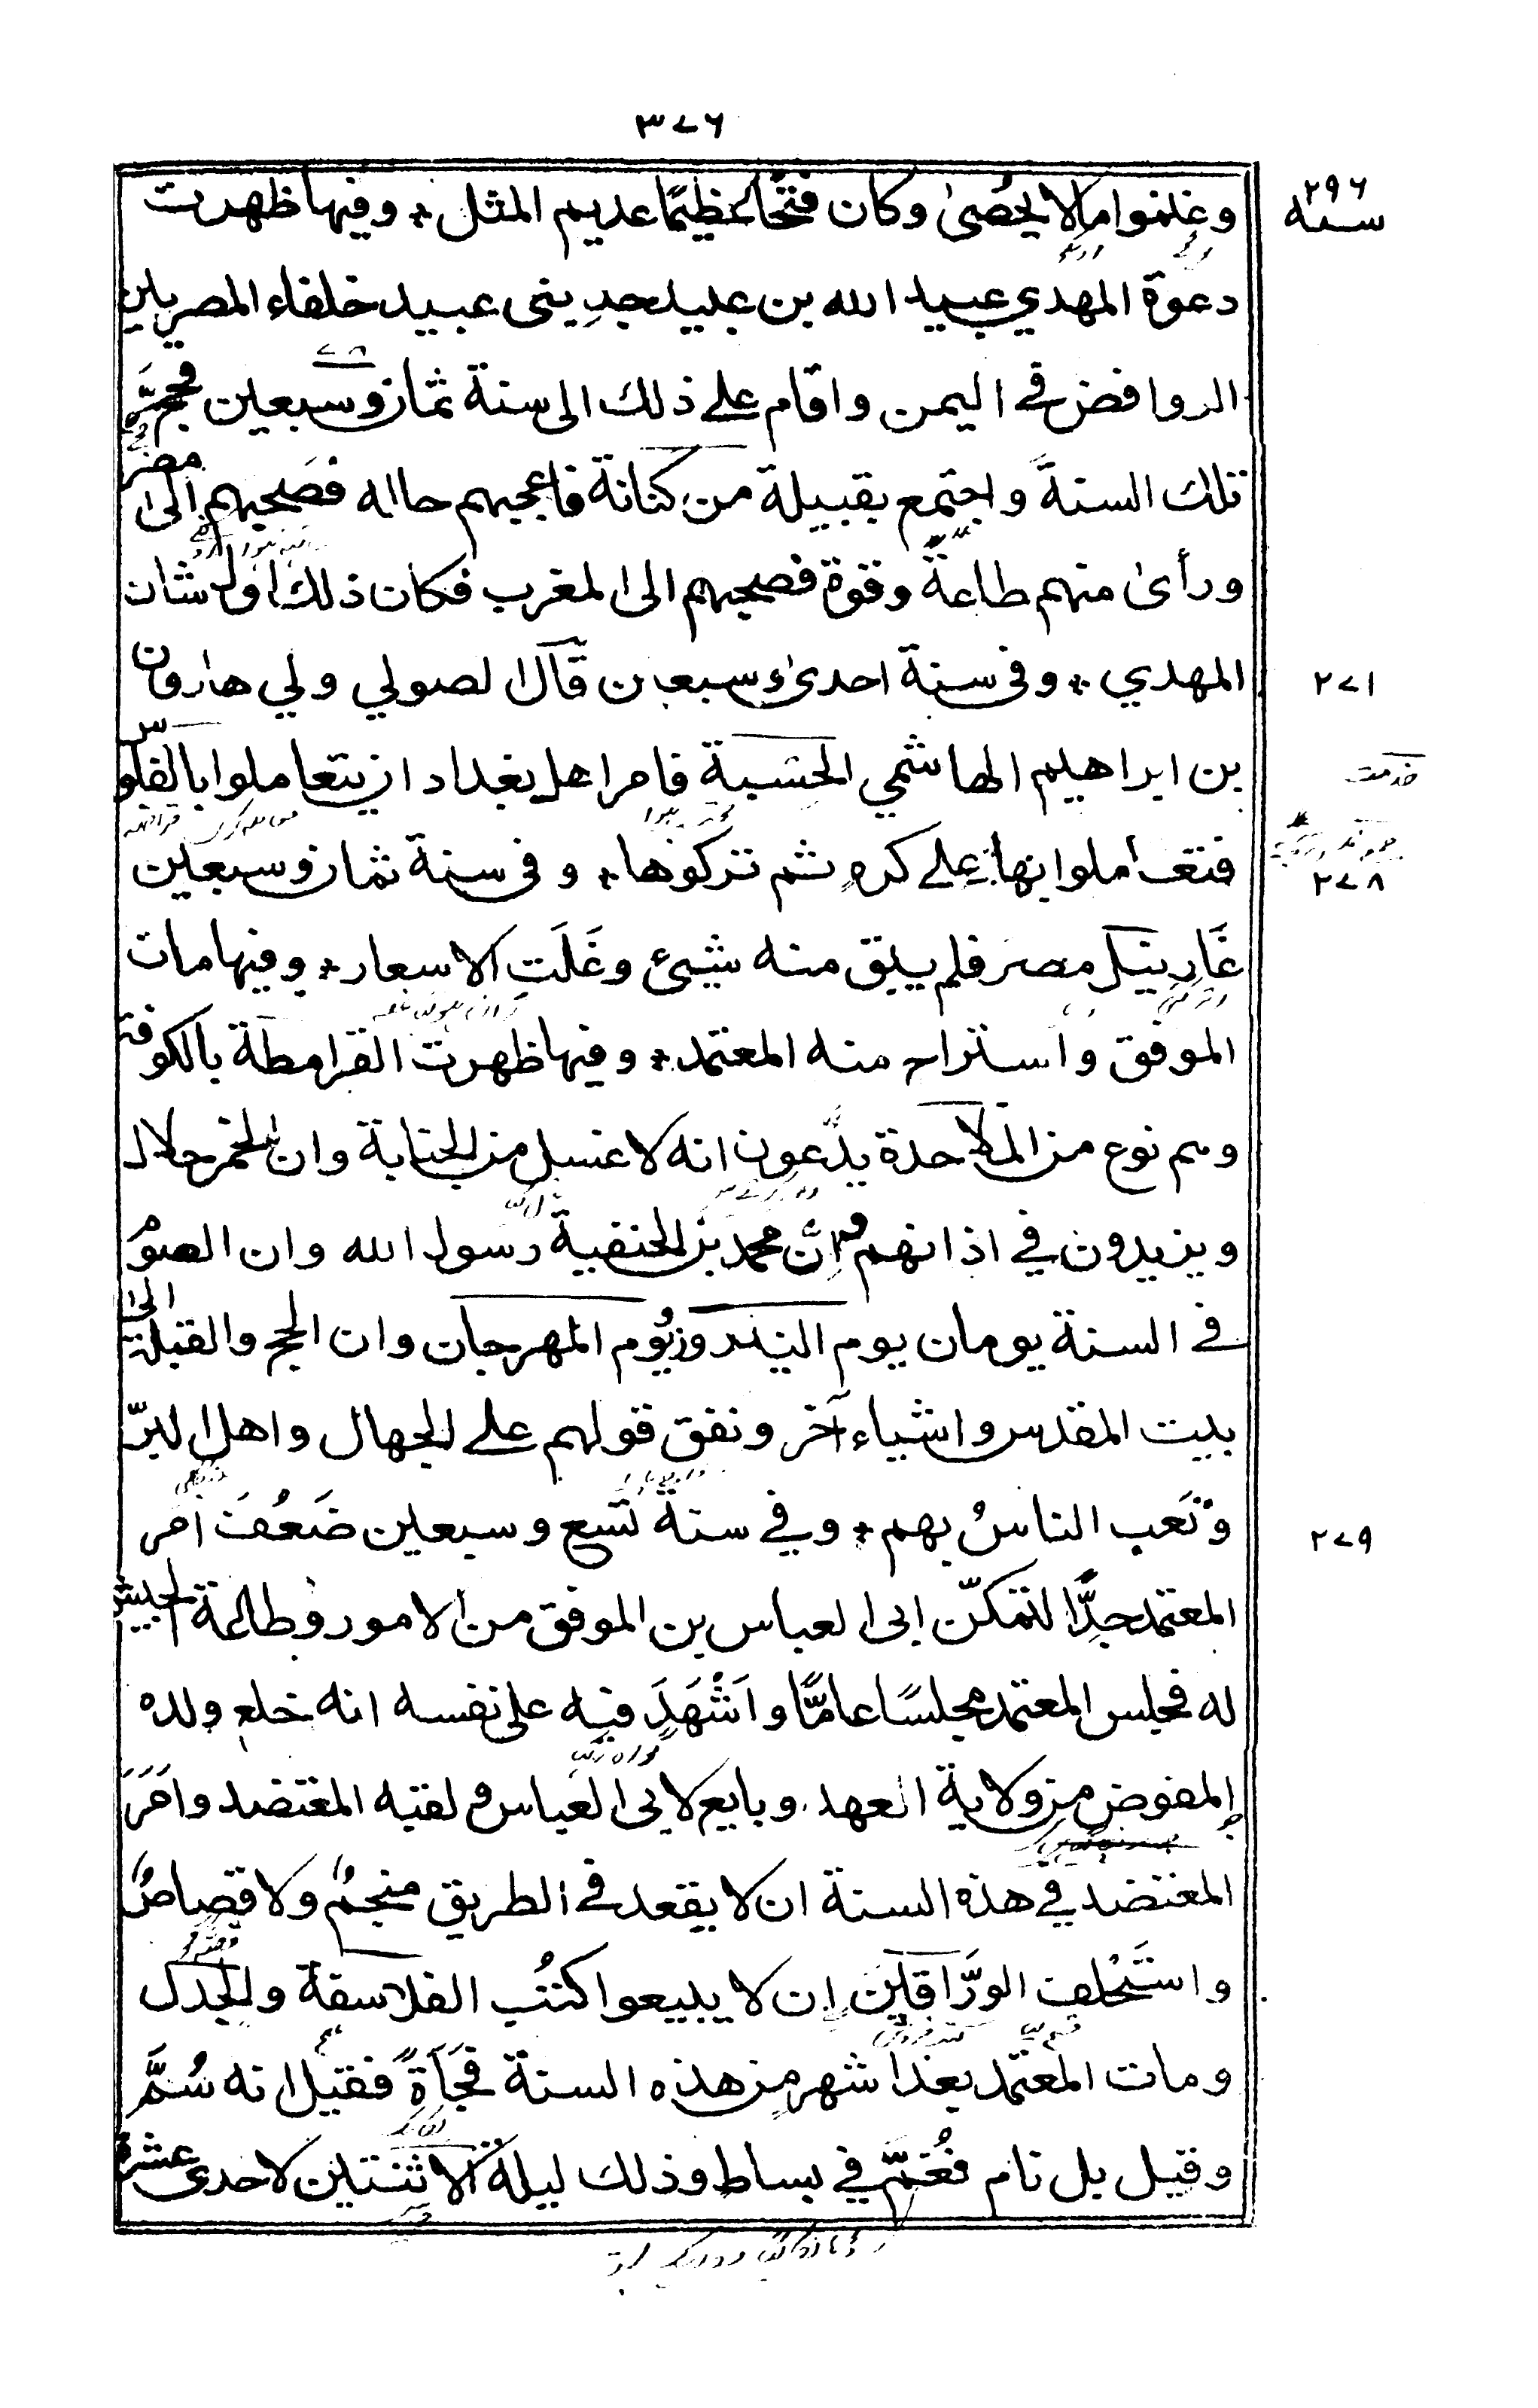 ٣٧٦
٢٩٦
سنه
وغلنموا مالا يُحصىٰ وكان فتحًا عظيمًا عديم المثل * وفيها ظهرت
دعوة المهدي عبيد الله بن عبيد جد بنى عبيد خلفاء المصريين
الروافض في اليمن واقام على ذلك الى سنة ثمان وسبعين فحجّ
تلك السنة واجتمع بقبيلة من كنانة فاعجبهم حاله فصَحبهم الى مصر
ورأىٰ منهم طاعةً وقوة فصحبهم الى المغرب فكان ذلك اول شان
المهدي * وفى سنة احدىٰ وسبعين قال الصولي ولي هارون
٢٧١
بن ابراهيم الهاشمي الحسبة فامر اهل بغداد ان يتعاملوا بالفلوس
خدمت
فتعاملوا بها على كرهٍ ثم تركوها * وفى سنة ثمان وسبعين
٢٧٨
غَار نيل مصر فلم يبق منه شيئ وغَلَتِ الاسعار * وفيها مات
الموفق واستراح منه المعتمد * وفيها ظهرت القرامطة بالكوفة
وهم نوع من الملاحدة يدّعون انه لا غسل من الجنابة وان الخمر حلال
ويزيدون في اذانهم وانّ محمد بن الحنفية رسول الله وان الصومَ
في السنة يومان يوم النيروز ويوم المهرجان وان الحج والقبلة الىٰ
بيت المقدس واشياء آخر ونفق قولهم على الجهال واهل البرّ
وتَعب الناسُ بهم * وفي سنة تسع وسبعين ضَعُفَ امر
٢٧٩
المعتمد جدًّا لتمكّن ابى العباس بن الموفق من الامور وطاعة الجيش
له فجلس المعتمد مجلسًا عامًّا واَشْهَدَ فيه على نفسه انه خلع ولده
المفوض من ولاية العهد وبايع لابى العباس ولقبه المعتضد واَمَرَ
المعتضد في هذه السنة ان لا يقعد في الطريق منجمٌ ولا قصاصٌ
واستَحْلف الورَّاقين ان لا يبيعوا كتُب الفلاسفة والجدل
ومات المعتمد بعد اشهر من هذه السنة فجَأةً فقيل انه سُمَّ
وقيل بل نام فغُمَّ في بساط وذلك ليلة الاثنتين لاحدى عشرة